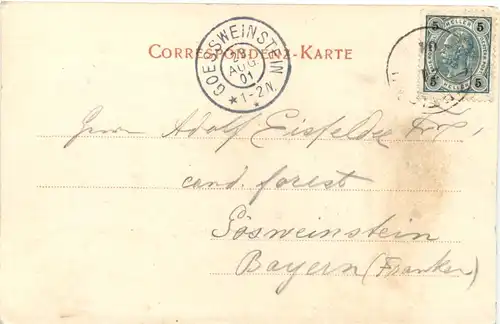 CORRESPONDENZ-KARTE
GOESSWEINSTEIN
AUG.
01
1-2 N.
5 HELLER 5
5 5
Herrn Adolf Eisfelder
cand. forest
Gösweinstein
Bayern (Franken)